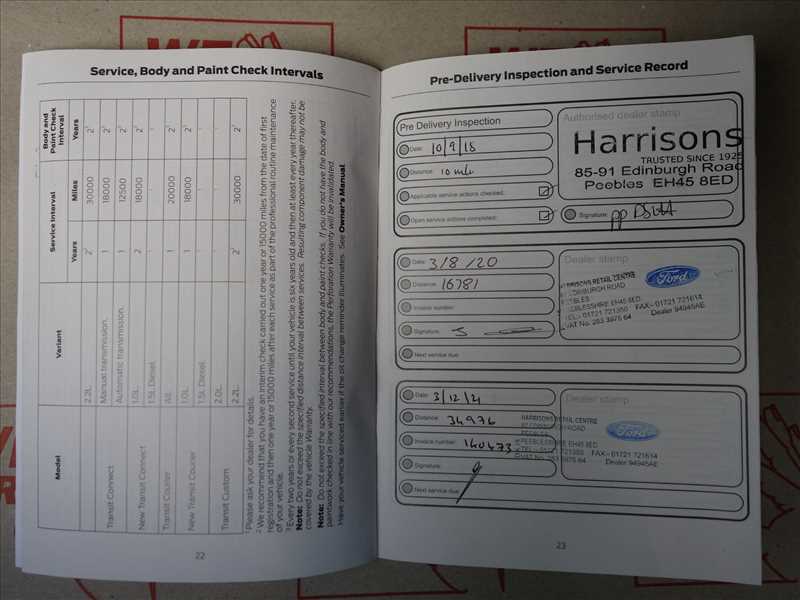 Service, Body and Paint Check Intervals
Model Variant Service Interval Body and Paint Check Interval
Years Miles Years
2.2L. 2² 30000 2³
Transit Connect Manual transmission. 1 18000 2³
Automatic transmission. 1 12500 2³
New Transit Connect 1.0L 2 18000 2³
1.5L Diesel. - - -
Transit Courier All. 1 20000 2³
New Transit Courier 1.0L 1 18000 2³
1.5L Diesel. - - -
Transit Custom 2.0L - - -
2.2L. 2² 30000 2³
¹ Please ask your dealer for details.
² We recommend that you have an interim check carried out one year or 15000 miles from the date of first
registration and then one year or 15000 miles after each service as part of the professional routine maintenance
of your vehicle.
³ Every two years or every second service until your vehicle is six years old and then at least every year thereafter.
Note: Do not exceed the specified distance interval between services. Resulting component damage may not be
covered by the Vehicle Warranty.
Note: Do not exceed the specified interval between body and paint checks. If you do not have the body and
paintwork checked in line with our recommendations, the Perforation Warranty will be invalidated.
Have your vehicle serviced earlier if the oil change reminder illuminates. See Owner's Manual
22
Pre-Delivery Inspection and Service Record
Pre Delivery Inspection
Date: 10/9/18
Distance: 10 mls
Applicable service actions checked:
Open service actions completed:
Authorised dealer stamp
Harrisons
TRUSTED SINCE 1925
85-91 Edinburgh Road
Peebles EH45 8ED
Signature: pp
Date: 3/8/20
Distance: 16781
Invoice number:
Signature:
Next service due:
Dealer stamp
HARRISONS RETAIL CENTRE
EDINBURGH ROAD
PEEBLES
PEEBLESSHIRE EH45 8ED
TEL:- 01721 721350 FAX:- 01721 721614
VAT No. 263 3976 64 Dealer 94945AE
Ford
Date: 3/12/21
Distance: 34976
Invoice number: 140473
Signature:
Next service due:
Dealer stamp
HARRISONS RETAIL CENTRE
EDINBURGH ROAD
PEEBLES
PEEBLESSHIRE EH45 8ED
TEL:- 01721 721350 FAX:- 01721 721614
VAT No. 263 3976 64 Dealer 94945AE
Ford
23